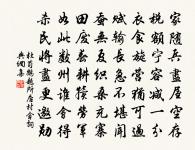 家隨兵盡屋空存
稅額寧容減一分
衣食旋營猶可過
賦輸長急不堪聞
蚕無夏織桑充寨
田廢春耕犢勞軍
如此數州誰會得
殺民將盡更邀勛
杜荀鶴題所居村舍